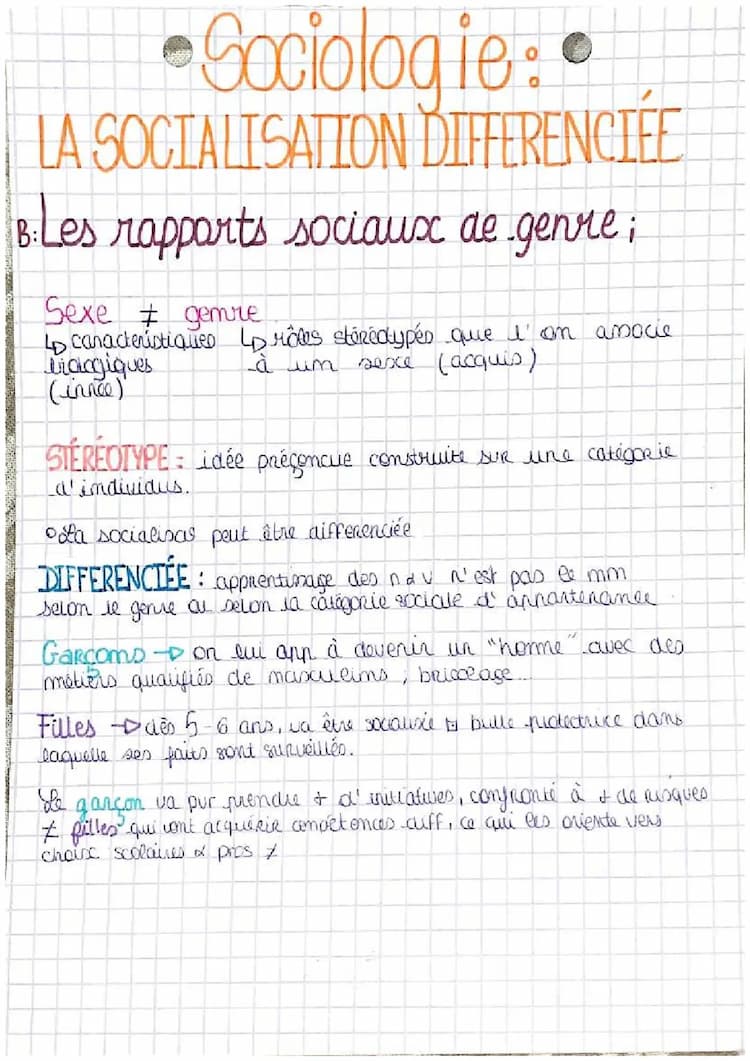 Sociologie:
LA SOCIALISATION DIFFERENCIÉE
B: Les rapports sociaux de genre ;
Sexe ≠ genre
↳ caractéristiques ↳ rôles stéréotypés que l'on associe
biologiques à un sexe (acquis)
(innée)
STÉRÉOTYPE : idée préçoncue construite sur une catégorie
d'individus.
° La socialisas peut être differenciée
DIFFERENCIÉE : apprentissage des n & v n'est pas le mm
selon le genre ou selon la catégorie sociale d'appartenance
Garçons → on lui app à devenir un "homme" avec des
métiers qualifiés de masculins, bricolage...
Filles → dès 5-6 ans, va être socialisée bulle protectrice dans
laquelle ses faits sont surveillés.
Le garçon va pvr prendre + d'initiatives, confronté à + de risques
≠ filles qui vont acquérir compétences diff, ce qui les oriente vers
choix scolaires & pros ≠